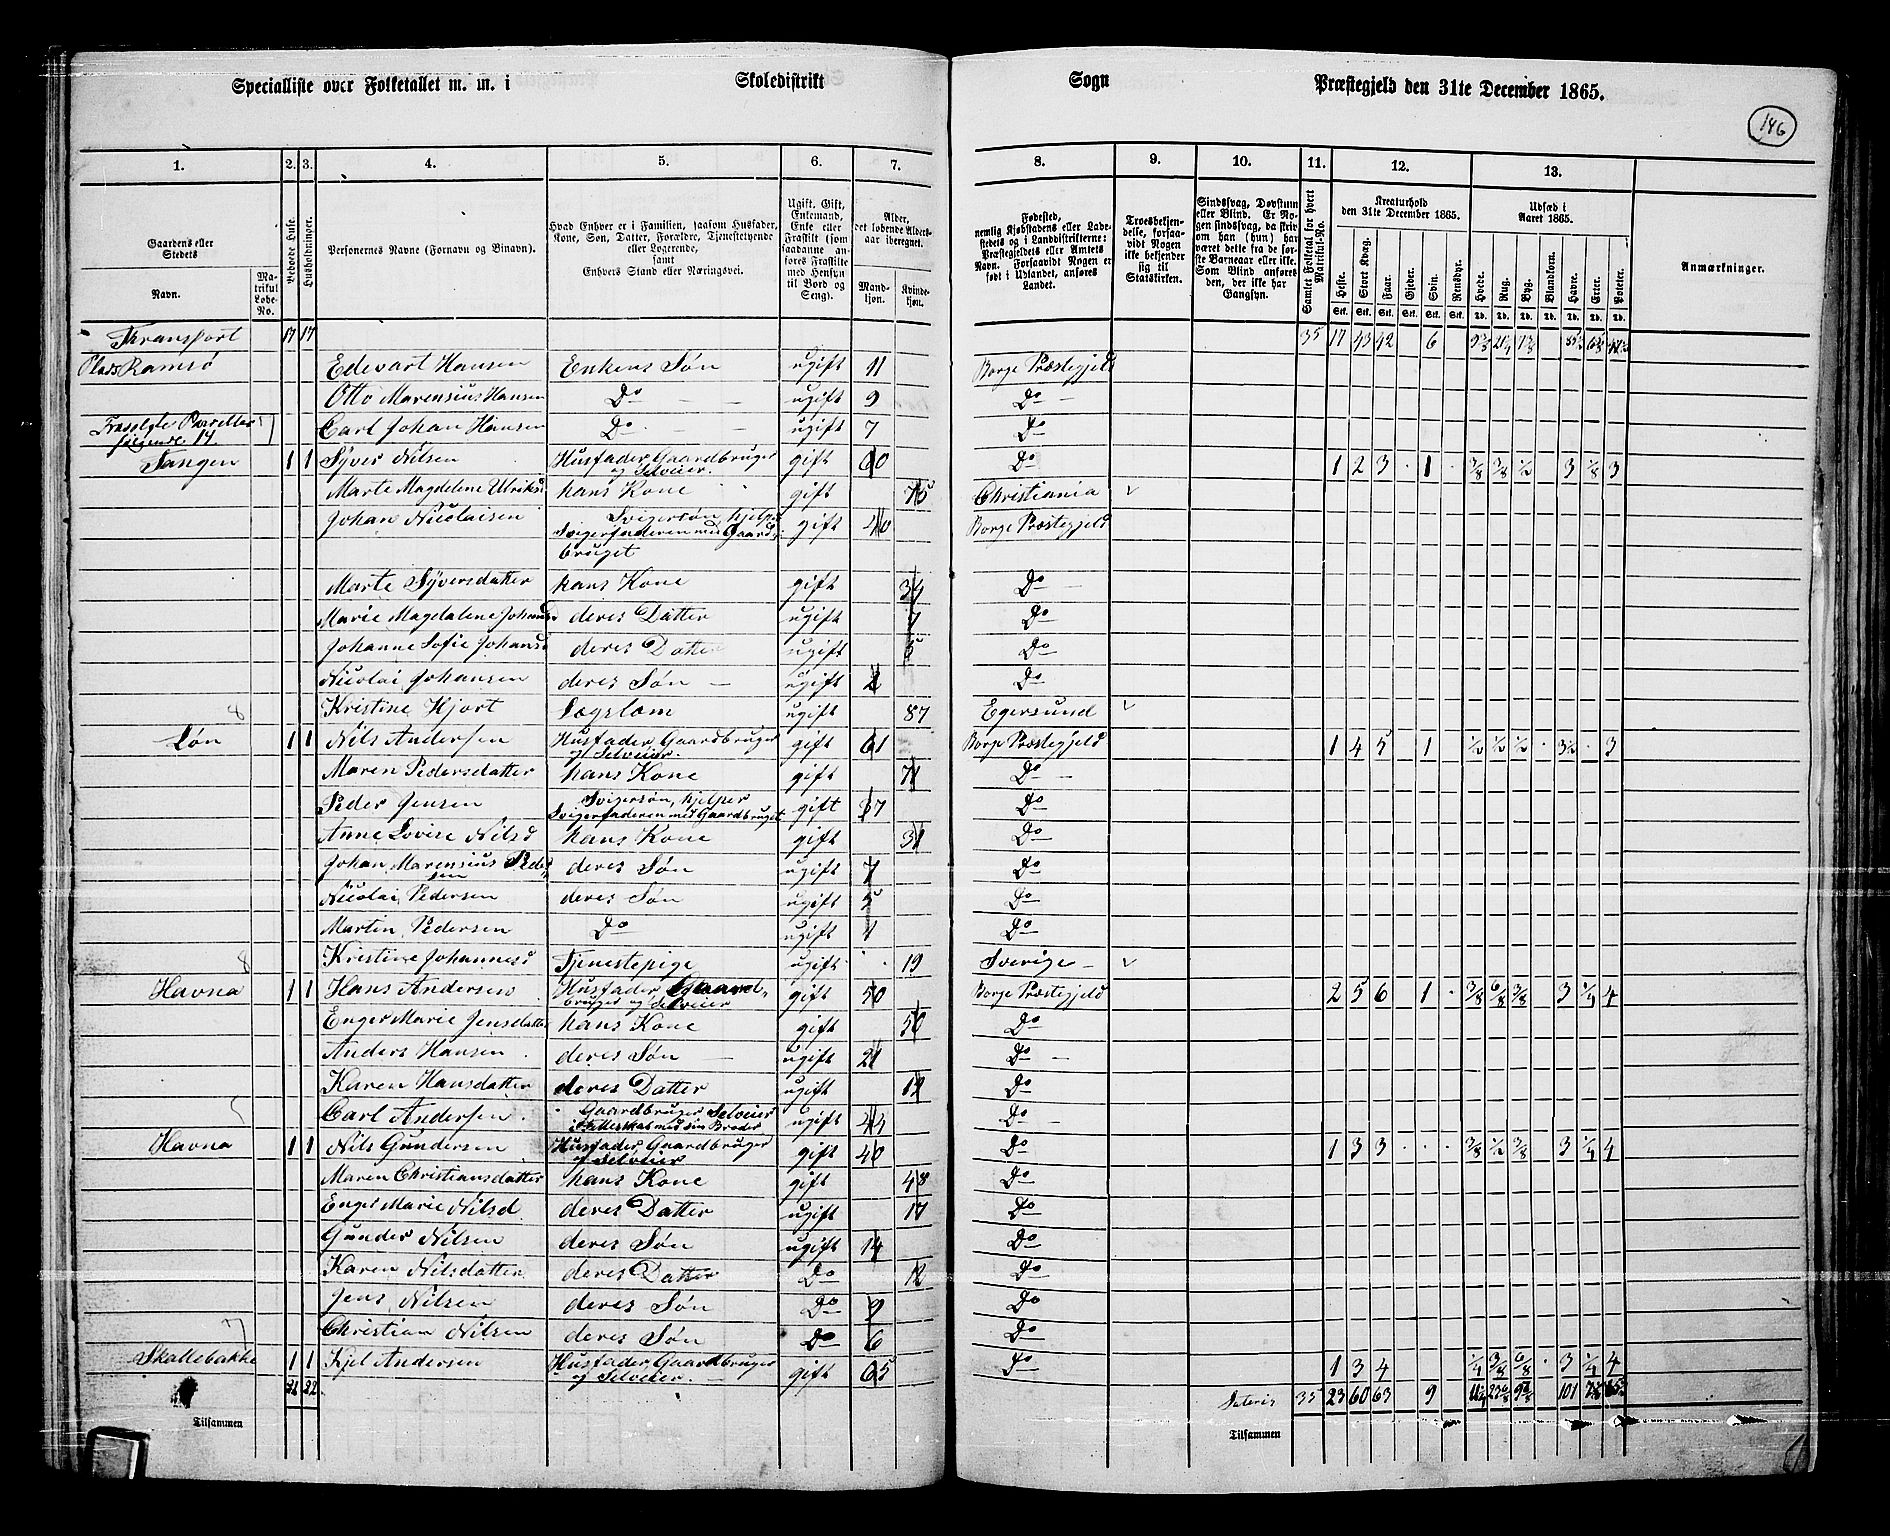 Specialliste over Folketallet m. m. i Skoledistrikt Sogn Præstegjeld den 31te December 1865.
146
1. 2. 3. 4. 5. 6. 7. 8. 9. 10. 11. 12. 13.
Gaardens eller Stedets Navn. Matrikul Løbe-No.
Beboede Huse.
Husholdninger.
Personernes Navne (Fornavn og Binavn).
Hvad Enhver er i Familien, saasom Husfader, Kone, Søn, Datter, Forældre, Tjenestetyende eller Logerende, samt Enhvers Stand eller Næringsvei.
Ugift, Gift, Enkemand, Enke eller Fraskilt (som saadanne anføres Fraskilte med Hensyn til Bord og Seng).
Alder, det løbende Aldersaar iberegnet. Mandkjøn. Kvindekjøn.
Fødested, nemlig Kjøbstadens eller Ladestedets og i Landdistrikterne: Præstegjeldets eller Amtets Navn. Forsaavidt Nogen er født i Udlandet, anføres Landet.
Troesbekjendelse, forsaavidt Nogen ikke bekjender sig til Statskirken.
Sindssvag, Døvstum eller Blind. Er Nogen sindssvag, da skriv om han (hun) har været dette fra de første Barneaar eller ikke. Som Blind anføres den, der ikke har Gangsyn.
Samlet Folketal for hvert Matrikul-No.
Kreaturhold den 31te December 1865. Heste. Stort Kvæg. Faar. Gjeder. Svin. Rensdyr.
Udsæd i Aaret 1865. Hvede. Rug. Byg. Blandkorn. Havre. Erter. Poteter.
Anmærkninger.
Transport 17 17 35 17 43 42 6
Plads Ramsø Edevart Hansen Enkens Søn ugift 11 Borge Præstegjeld
Otto Marensius Hansen Do ugift 9 Do
Fraskilte Parceller følgende 14 Carl Johan Hansen Do ugift 7 Do
Tangen 1 1 Syver Nilsen Husfader, Gaardbruger og Selveier. gift 60 Do 1 2 3 1 3/8 3/8 1/2 3 1/8 3
Marte Magdelene Ulriks hans Kone gift 75 Christiania
Johan Nicolaisen Svigersøn, hjelper Svigerfaderen med Gaardbruget gift 40 Borge Præstegjeld
Marte Syversdatter hans Kone gift 34 Do
Marie Magdalene Johans deres Datter ugift 7 Do
Johanne Sofie Johansd deres Datter ugift 5 Do
Nicolai Johansen deres Søn ugift 2 Do
8 Kristine Hjort Lægslem ugift 87 Egersund
Løn 1 1 Nils Andersen Husfader, Gaardbruger og Selveier. gift 61 Borge Præstegjeld 1 4 5 1 1/2 1/2 1/2 3 1/2 3
Maren Pedersdatter hans Kone gift 71 Do
Peder Jensen Svigersøn, hjelper Svigerfaderen med Gaardbruget gift 37 Do
Anne Lovise Nilsd hans Kone gift 31 Do
Johan Marensius Pedersen deres Søn ugift 7 Do
Nicolai Pedersen deres Søn ugift 5 Do
Martin Pedersen Do ugift 1 Do
8 Kristine Johannesd Tjenestepige ugift 19 Sverige
Havna 1 1 Hans Andersen Husfader Gaardbruger og Selveier gift 50 Borge Præstegjeld 2 5 6 1 3/8 6/8 3/8 3 1/4 4
Enger Marie Jensdatter hans Kone gift 50 Do
Anders Hansen deres Søn ugift 21 Do
Karen Hansdatter deres Datter ugift 12 Do
5 Carl Andersen Gaardbruger Selveier i Fælleskab med sin Broder ugift Do
Havna 1 1 Nils Gundersen Husfader, Gaardbruger og Selveier gift 40 Do 1 3 3 3/8 1/2 3/8 3 1/4 4
Maren Christiansdatter hans Kone gift 48 Do
Enger Marie Nilsd deres Datter ugift 17 Do
Gunder Nilsen deres Søn ugift 14 Do
Karen Nilsdatter deres Datter Do 12 Do
Jens Nilsen deres Søn Do 9 Do
7 Christian Nilsen deres Søn Do 6 Do
Skallebakke 1 1 Kjel Andersen Husfader, Gaardbruger og Selveier gift 65 Do 1 3 4 1/4 3/8 6/8 3 1/4 4
22 22 Lateris 35 23 60 63 9 101
Tilsammen Tilsammen